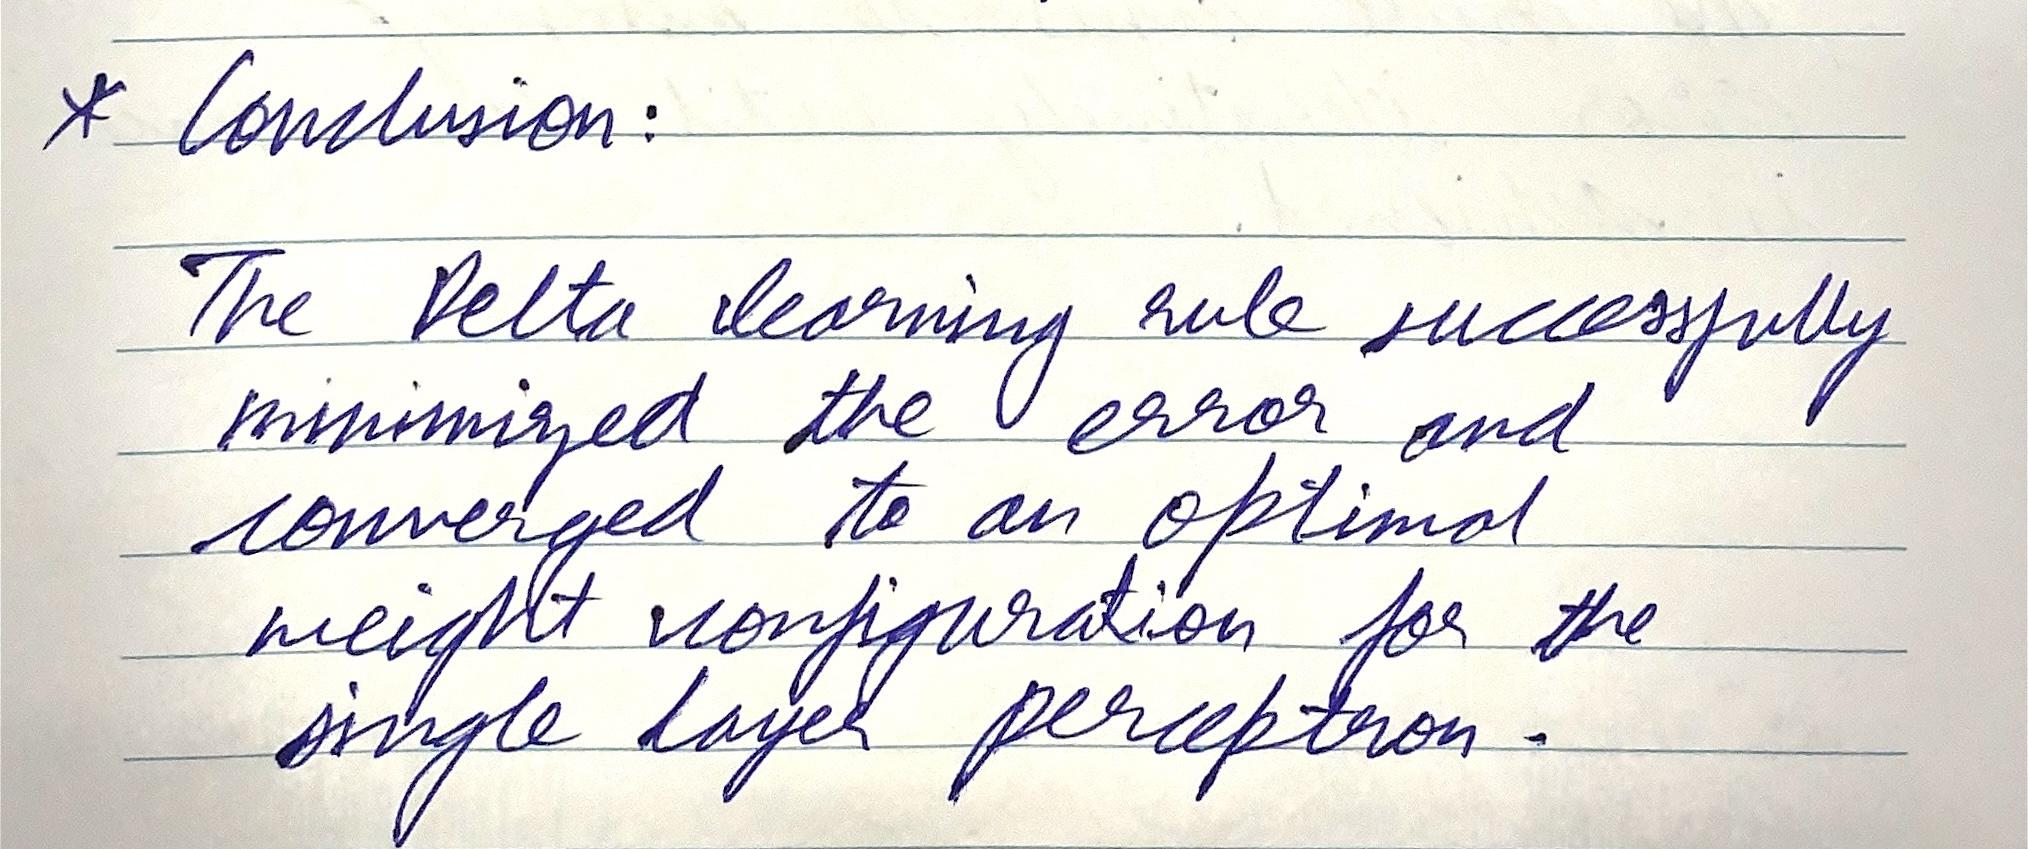 * Conclusion:
The Delta learning rule successfully
minimized the error and
converged to an optimal
weight configuration for the
single layer perceptron.